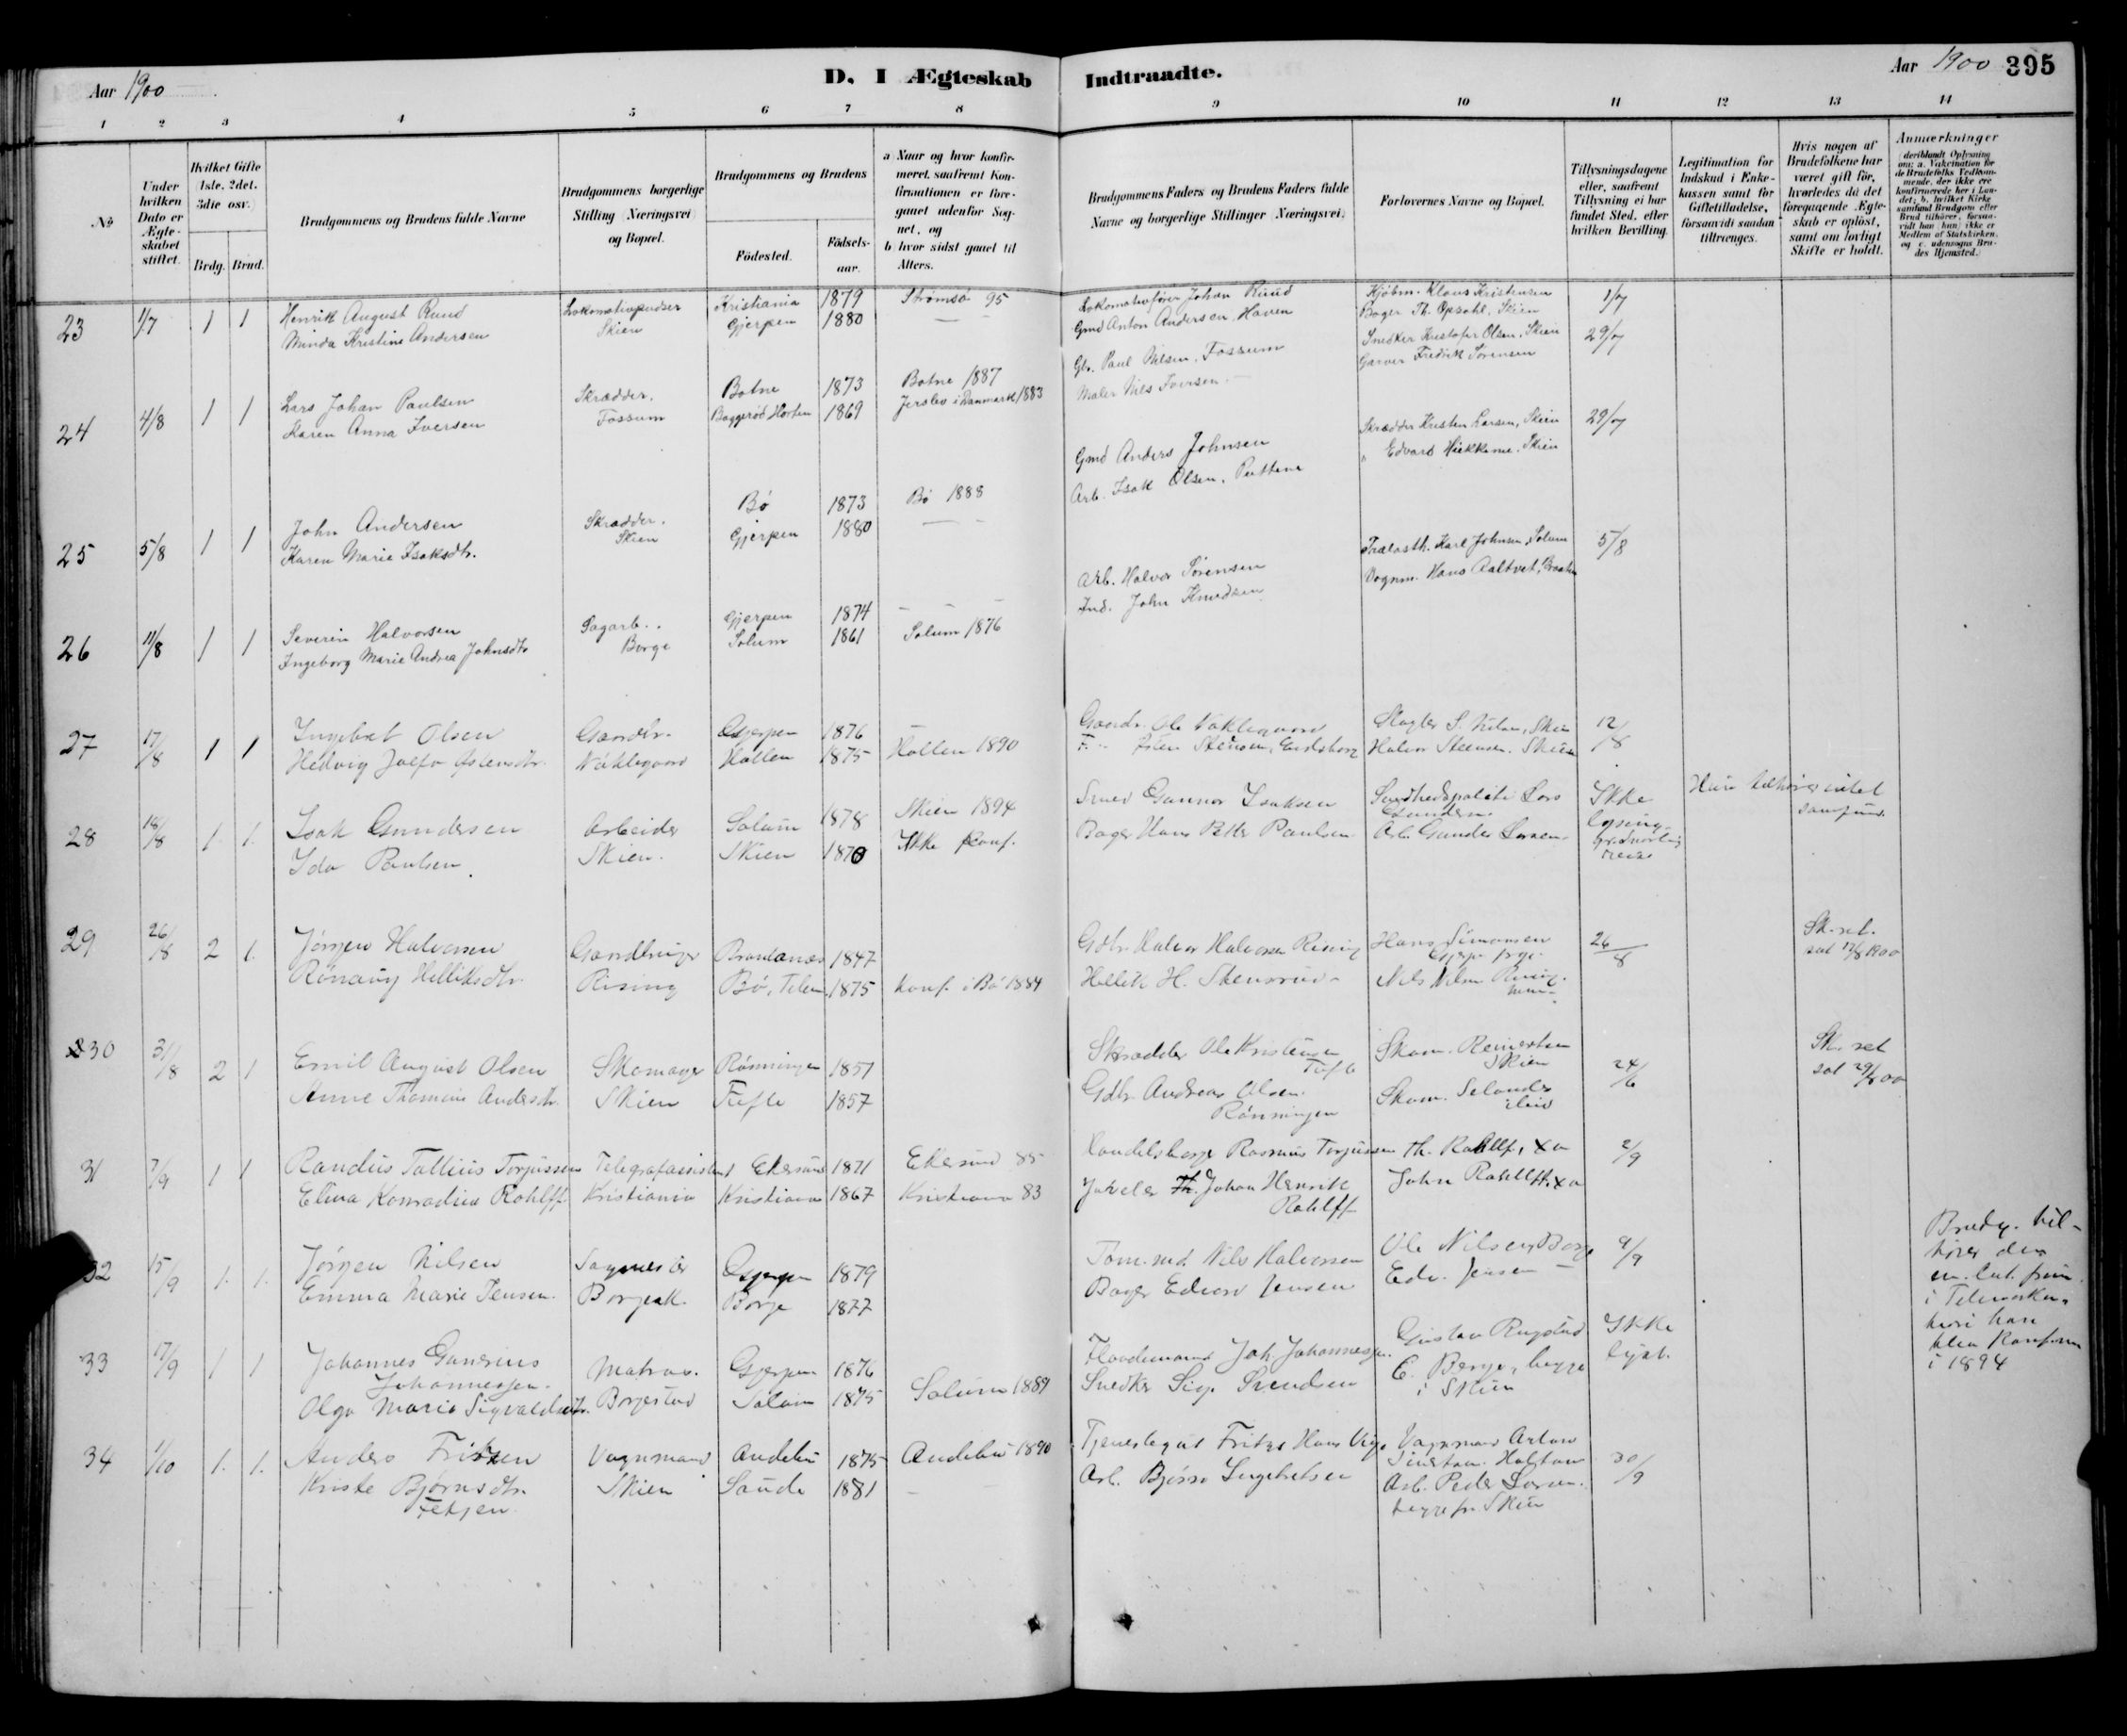 Aar 1900
D. I Ægteskab Indtraadte.
Aar 1900 395
1 2 3 4 5 6 7 8 9 10 11 12 13 14
No
Under hvilken Dato er Ægteskabet stiftet.
Hvilket Gifte (1ste, 2det, 3die osv.)
Brdg. Brud.
Brudgommens og Brudens fulde Navne
Brudgommens borgerlige Stilling (Næringsvei) og Bopæl.
Brudgommens og Brudens
Födested. Födselsaar.
a Naar og hvor konfirmeret, saafremt Konfirmationen er foregaaet udenfor Sognet, og
b hvor sidst gaaet til Alters.
Brudgommens Faders og Brudens Faders fulde Navne og borgerlige Stillinger (Næringsvei)
Forlovernes Navne og Bopæl.
Tillysningsdagene eller, saafremt Tillysning ei har fundet Sted, efter hvilken Bevilling.
Legitimation for Indskud i Enkekassen samt for Giftetilladelse, forsaavidt saadan tiltrænges.
Hvis nogen af Brudefolkene har været gift för, hvorledes da det foregaaende Ægteskab er oplöst, samt om lovligt Skifte er holdt.
Anmærkninger (deriblandt Oplysning om: a. Vakcination for de Brudefolks Vedkommende, der ikke ere konfirmerede her i Landet; b. hvilket Kirkesamfund Brudgom eller Brud tilhörer, forsaavidt han (hun) ikke er Medlem af Statskirken, og c. udensogns Brudes Hjemsted.)
23 1/7 1 1 Henrik August Ruud Lokomotivpudser Kristiania 1879 Strømsø 95 Lokomotivfører Johan Ruud Kjøbm. Klaus Kristensen 1/7
Minda Kristine Andersen Skien Gjerpen 1880 — Gmd Anton Andersen, Haven Bager Th. Opdahl, Skien
24 4/8 1 1 Lars Johan Paulsen Skrædder. Botne 1873 Botne 1887 Gbr. Paul Nilsen, Fossum Snedker Kristofer Olsen, Skien 29/7
Karen Anna Iversen Fossum Horten 1869 Jerslev i Danmark 1883 Maler Nils Iversen Garver Fredrik Sørensen
25 5/8 1 1 John Andersen Skrædder. Bø 1873 Bø 1888 Gmd Anders Johnsen Skrædder Kristen Larsen, Skien 29/7
Karen Marie Isaksdtr. Skien Gjerpen 1880 — Arb. Isak Olsen, Edvard Skien
26 11/8 1 1 Severin Halvorsen Sagarb. Gjerpen 1874 — Arb. Halvor Sørensen Trælasth. Karl Johnsen, Solum 5/8
Ingeborg Marie Andrea Johnsdtr Borge Solum 1861 Solum 1876 Ind. John Knudsen Vognm. Hans Aaltvet,
27 17/8 1 1 Ingebret Olsen Gaardbr. Gjerpen 1876 — Gaardb. Ole Slagter S. Skien 12/8
Hedvig Østensdtr. Holden 1875 Hollen 1890 Østen Stensen, Halvor Steensen, Skien
28 18/8 1 1. Isak Gundersen Arbeider Solum 1878 Skien 1894 Smed Gunnar Isaksen Sundhedspoliti Lars Ikke lysning Hun tilhører intet samfund
Ida Paulsen. Skien. Skien 1870 Ikke konf. Bager Hans Petter Paulsen Arb. Gunder Larsen
29 26/8 2 1. Jørgen Halvorsen Gaardbruger 1847 Gdbr. Halvor Halvorsen Rising Hans Simonsen 26/8 Sk.ret. sat 17/8 1900
Rønaug Helliksdtr. Rising Bø, Telem. 1875 Konf. i Bø 1884 Hellik H. Stensrud Nils Nilsen Rising
30 31/8 2 1 Emil August Olsen Skomager Rønningen 1851 Skrædder Ole Kristensen Tufte Skom. Reinertsen Skien 24/6 Sk. ret sat 29/8 00
Anne Thomine Andersdtr. Skien Tufte 1857 Gdbr. Andreas Olsen. Rønningen Skom. Selander
31 7/9 1 1 Randius Tallius Torjussen Telegrafassistent Ekersund 1871 Ekersund 85 Handelsborger Rasmus Torjussen Th. Rohlff, Xa 2/9
Elina Konradine Rohlff. Kristiania Kristiania 1867 Kristiania 83 Juveler Johan Henrik Rohlff John Rohlff. Xa
32 15/9 1. 1. Jørgen Nilsen Gjerpen 1879 Tøm.md. Nils Halvorsen Ole Nilsen, Borge 9/9
Emma Marie Jensen. Borge 1877 Bager Edvard Jensen Edv. Jensen —
Brudg. tilhører den ev. lut. frim. i Telemarken, hvori han blev konfirm. i 1894
33 17/9 1 1 Johannes Gunerius Johannessen. Matros. Gjerpen 1876 Flaademand Joh. Johannessen. Gustav Rugstad Ikke lyst.
Olga Marie Sigvaldsdtr. Borgestad Solum 1875 Solum 1889 Snedker Sig. Svendsen E. Berge, begge i Skien
34 1/10 1. 1. Anders Fritzen Vognmand Andebu 1875 Andebu 1890 Tjenestegut Fritzs Hans Vognmand Anton 30/9
Kriste Bjørnsdtr. Fekjen Skien Saude 1881 — Arb. Bjørn Ingebretsen Arb. Peder Larsen. begge fr. Skien